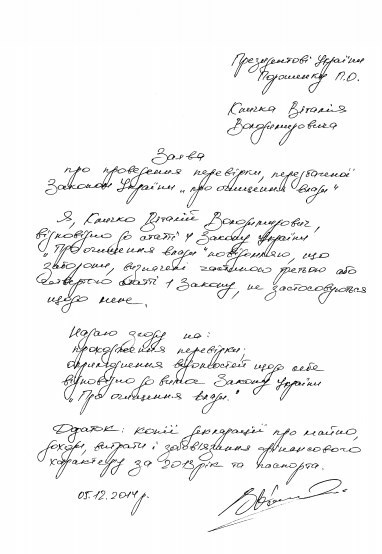 Президентові України
Порошенку П.О.
Кличка Віталія
Володимировича
Заява
про проведення перевірки, передбаченої
Законом України „про очищення влади“
Я, Кличко Віталій Володимирович,
відповідно до статті 4 Закону України
„Про очищення влади“ повідомляю, що
заборони, визначені частиною третьою або
четвертою статті 1 Закону, не застосовуються
щодо мене.
Надаю згоду на:
проходження перевірки;
оприлюднення відомостей щодо себе
відповідно до вимог Закону України
„Про очищення влади.“
Додаток: копії декларації про майно,
доходи, витрати і зобов'язання фінансового
характеру за 2013 рік та паспорта.
05.12.2014 р.